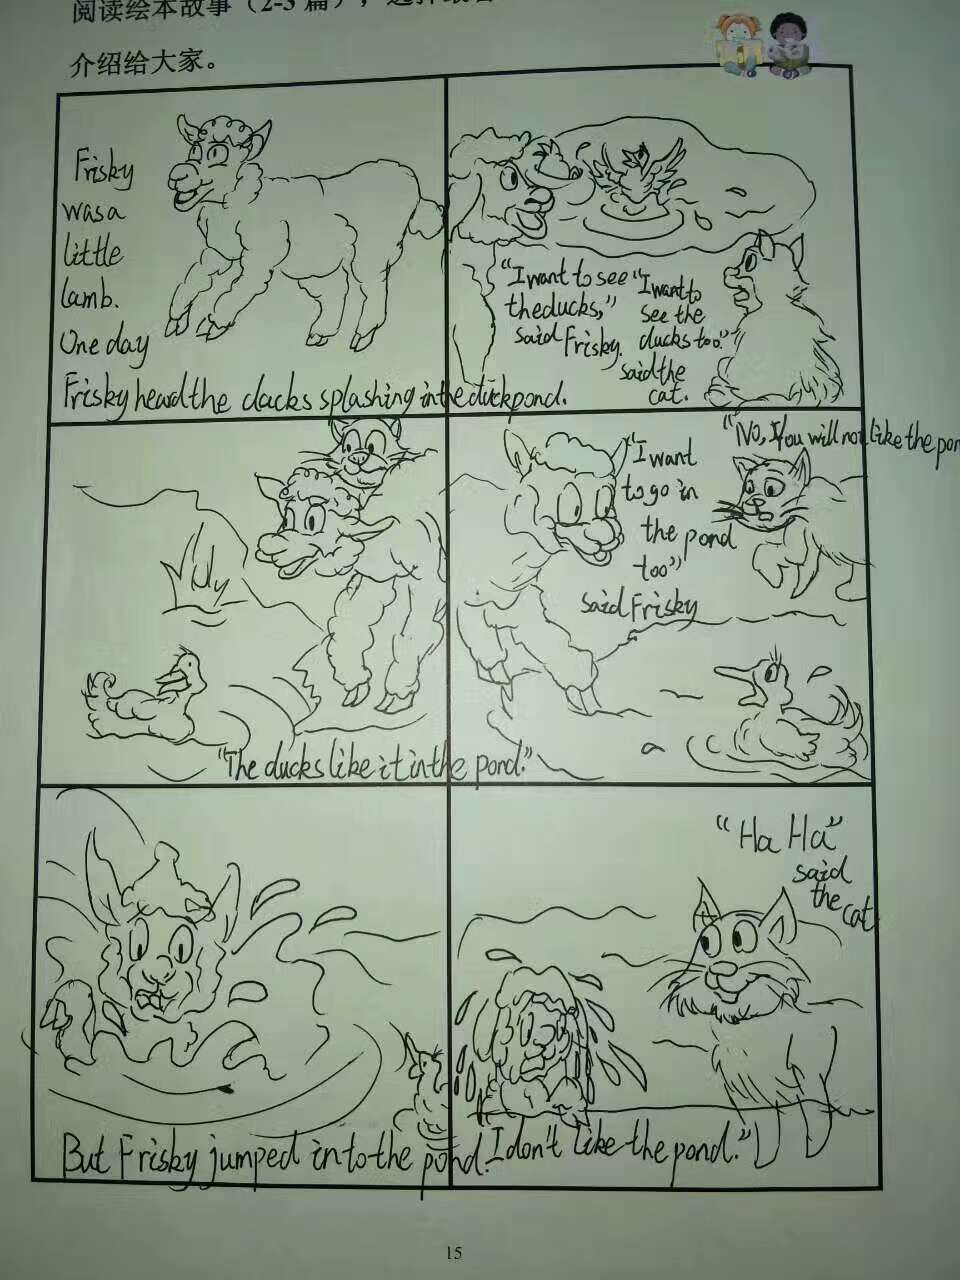 阅读绘本故事（2-3 篇），选择最
介绍给大家。
Frisky
was a
little
lamb.
One day
Frisky heard the ducks splashing in the duckpond.
"I want to see
the ducks,"
said Frisky.
"I want to
see the
ducks too."
said the
cat.
"The ducks like it in the pond."
"I want
to go in
the pond
too"
said Frisky
"No, You will not like the pon
But Frisky jumped into the pond.
"Ha Ha"
said
the cat
I don't like the pond."
15